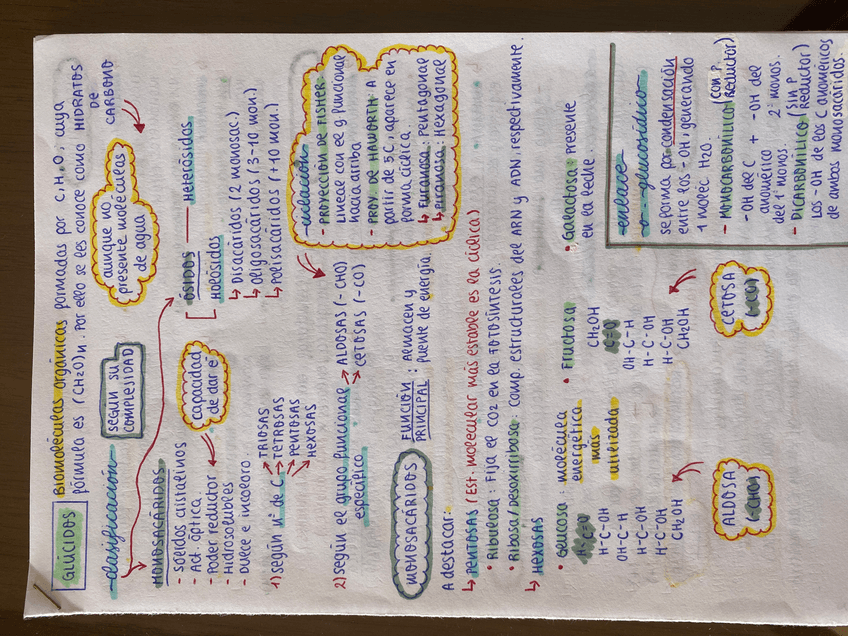 GLÚCIDOS Biomoléculas orgánicas formadas por C, H, O, cuya
fórmula es (CH2O)n. Por ello se les conoce como HIDRATOS
DE
CARBONO
aunque no
presente moléculas
de agua
clasificación
SEGÚN SU
COMPLEJIDAD
MONOSACÁRIDOS
- Sólidos cristalinos
- Act. óptica.
- Poder reductor
- Hidrosolubles
- Dulce e incoloro
capacidad
de dar e-
ÓSIDOS
Heterósidos
Holósidos
↳ Disacáridos (2 monosac.)
↳ Oligosacáridos (3-10 mon.)
↳ Polisacáridos (+10 mon.)
1) Según nº de C
TRIOSAS
TETROSAS
PENTOSAS
HEXOSAS
2) Según el grupo funcional
específico
ALDOSAS (-CHO)
CETOSAS (-CO)
- PROYECCIÓN DE FISHER
Lineal con el g. funcional
hacia arriba
- PROY. DE HAWORTH: A
partir de 5C, aparece en
forma cíclica.
↳ Furanosa: Pentagonal
↳ Piranosa: Hexagonal
MONOSACÁRIDOS
FUNCIÓN
PRINCIPAL: Almacén y
fuente de energía.
A destacar:
↳ PENTOSAS (Est. molecular más estable es la cíclica)
• Ribulosa: Fija el CO2 en la FOTOSÍNTESIS
• Ribosa/Desoxirribosa: comp. estructurales del ARN y ADN, respectivamente.
↳ HEXOSAS
• Glucosa: molécula
energética
más
utilizada
H-C=O
H-C-OH
OH-C-H
H-C-OH
H-C-OH
CH2OH
ALDOSA
(-CHO)
• Fructosa
CH2OH
C=O
OH-C-H
H-C-OH
H-C-OH
CH2OH
CETOSA
(-CO)
• Galactosa: Presente
en la leche.
enlace
o-glucosídico
se forma por condensación
entre los -OH generando
1 molec H2O.
- MONOCARBONÍLICO (con P. Reductor)
-OH del C + -OH del
anomérico 2º monos.
del 1º monos.
- DICARBONÍLICO (sin P Reductor)
Los -OH de los C anoméricos
de ambos monosacáridos.